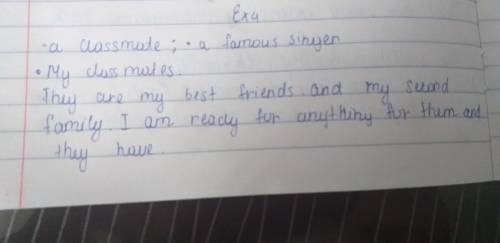 Ex4
• a classmate ; • a famous singer
• My classmates.
They are my best friends and my second
family. I am ready for anything for them and
they have